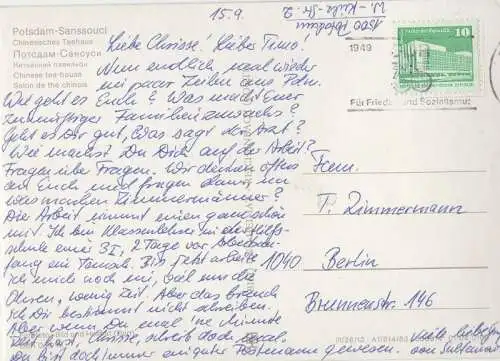 15.9.
1500 Potsdam
Potsdam-Sanssouci
Chinesisches Teehaus
Потсдам-Сансуси
Китайский павильон
Chinese tea-house
Salon de thé chinois
10
1949
Für Frieden und Sozialismus
Liebe Chrisse! Lieber Timo!
Nun endlich mal wieder
ein paar Zeilen aus Pdm.
Wie geht es Euch? Was macht Euer
zukünftiger Familienzuwachs?
Geht es Dir gut, was sagt der Arzt?
Wie machst Du Dich auf der Arbeit?
Fragen über Fragen. Wir denken öfters
an Euch und fragen dann, na
was machen Zimmermänner?
Die Arbeit nimmt einen ganz schön
mit. Ich bin Klassenlehrer in der Hilfs-
schule einer 3., 2 Tage vor
Ich noch mit, viel um die
Ohren, wenig Zeit. Aber das brauch
ich Dir bestimmt nicht schreiben.
Aber wenn Du mal 'ne Minute
hast, Chrisse, schreib doch mal.
Du bist doch immer ein guter Postmann gewesen.
Fam.
T. Zimmermann
1040 Berlin
Brunnenstr. 146